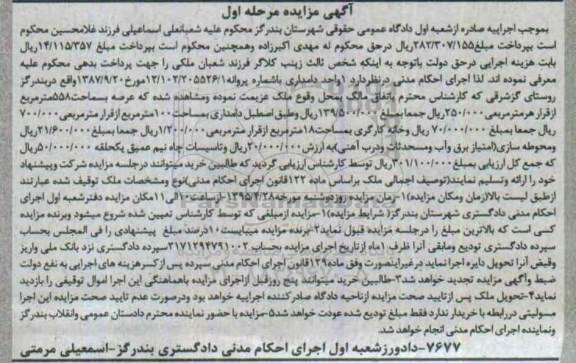 آگهی مزایده مرحله اول
بموجب اجراییه صادره ازشعبه اول دادگاه عمومی حقوقی شهرستان بندرگز محکوم علیه شعبانعلی اسماعیلی فرزند غلامحسین محکوم
است بپرداخت مبلغ۲۸۲/۳۰۷/۱۵۵ریال درحق محکوم له مهدی اکبرزاده وهمچنین محکوم است بپرداخت مبلغ ۱۴/۱۱۵/۳۵۷ریال
بابت هزینه اجرایی درحق دولت باتوجه به اینکه شخص ثالث زینب کلاگر فرزند شعبان ملکی را جهت پرداخت بدهی محکوم علیه
معرفی نموده اند. لذا اجرای احکام مدنی درنظردارد ۱واحد دامداری باشماره پروانه۱۲/۱۰۲/۲۰۵۵۲۶/۱مورخ۱۳۸۷/۹/۲۰واقع دربندرگز
روستای گزشرقی که کارشناس محترم باتفاق مالک بمحل وقوع ملک عزیمت نموده ومشاهده شده که عرصه بمساحت۵۵۸مترمربع
ازقرار هرمترمربعی۲۵۰/۰۰۰ریال جمعا بمبلغ ۱۳۹/۵۰۰/۰۰۰ریال وطبق اصطبل دامداری بمساحت۱۰۰مترمربع ازقرار مترمربعی ۷۰۰/۰۰۰
ریال جمعا بمبلغ ۷۰/۰۰۰/۰۰۰ریال وخانه کارگری بمساحت۱۸مترمربع ازقرار مترمربعی۱/۲۰۰/۰۰۰ریال جمعا بمبلغ ۲۱/۶۰۰/۰۰۰ریال
ومحوطه سازی(امتیاز برق وآب ومستحدثات ودرب آهنی)به ارزش۲۰/۰۰۰/۰۰۰ریال وتاسیسات چاه نیم عمیق یکحلقه ۵۰/۰۰۰/۰۰۰ریال
که جمع کل ارزیابی بمبلغ۳۰۱/۱۰۰/۰۰۰ریال توسط کارشناس ارزیابی گردید که طالبین خرید میتوانند درجلسه مزایده شرکت وپیشنهاد
خود را ارائه وتسلیم نمایند(توصیف اجمالی ملک براساس ماده ۱۲۲قانون اجرای احکام مدنی)نوع ومشخصات ملک توقیف شده عبارتند
ازطبق لیست بالازمان ومکان مزایده۱)-زمان مزایده روزدوشنبه مورخه۱۳۹۵/۲/۲۸-ازساعت۱۰الی۱۱مکان مزایده دفترشعبه اول اجرای
احکام مدنی دادگستری شهرستان بندرگز( شرایط مزایده)۱-مزایده ازمبلغی که توسط کارشناس تعیین شده شروع میشود وبرنده مزایده
کسی است که بالاترین مبلغ را درجلسه مزایده قبول نماید۲-برنده مزایده میبایست۱۰درصد مبلغ پیشنهادی را فی المجلس بحساب
سپرده دادگستری تودیع ومابقی آنرا ظرف ۱ماه ازتاریخ اجرای مزایده بحساب ۲۱۷۱۲۹۴۷۹۱۰۰۲سپرده دادگستری نزد بانک ملی واریز
وقبض آنرا تحویل دایره اجرا نماید در غیراینصورت وفق ماده۱۲۹قانون اجرای احکام مدنی سپرده پس ازکسرهزینه های اجرایی به نفع دولت
ضبط وآگهی مزایده تجدید خواهد شد۳-طالبین خرید میتوانند پنج روزقبل ازاجرای مزایده باهماهنگی این اجرا اموال توقیفی را بازدید
نماید۴-تحویل ملک پس ازتایید صحت مزایده ازناحیه دادگاه صادر کننده اجراییه خواهد بود ودرصورت عدم تایید صحت مزایده این اجرا
مسولیتی دررابطه با خریدار ندارد فقط مبلغ تودیع شده عودت خواهد شد۵-مزایده با حضور نماینده محترم دادستان عمومی وانقلاب بندرگز
ونماینده اجرای احکام مدنی انجام خواهد شد.
۷۶۷۷-دادورزشعبه اول اجرای احکام مدنی دادگستری بندرگز-اسمعیلی مرمتی